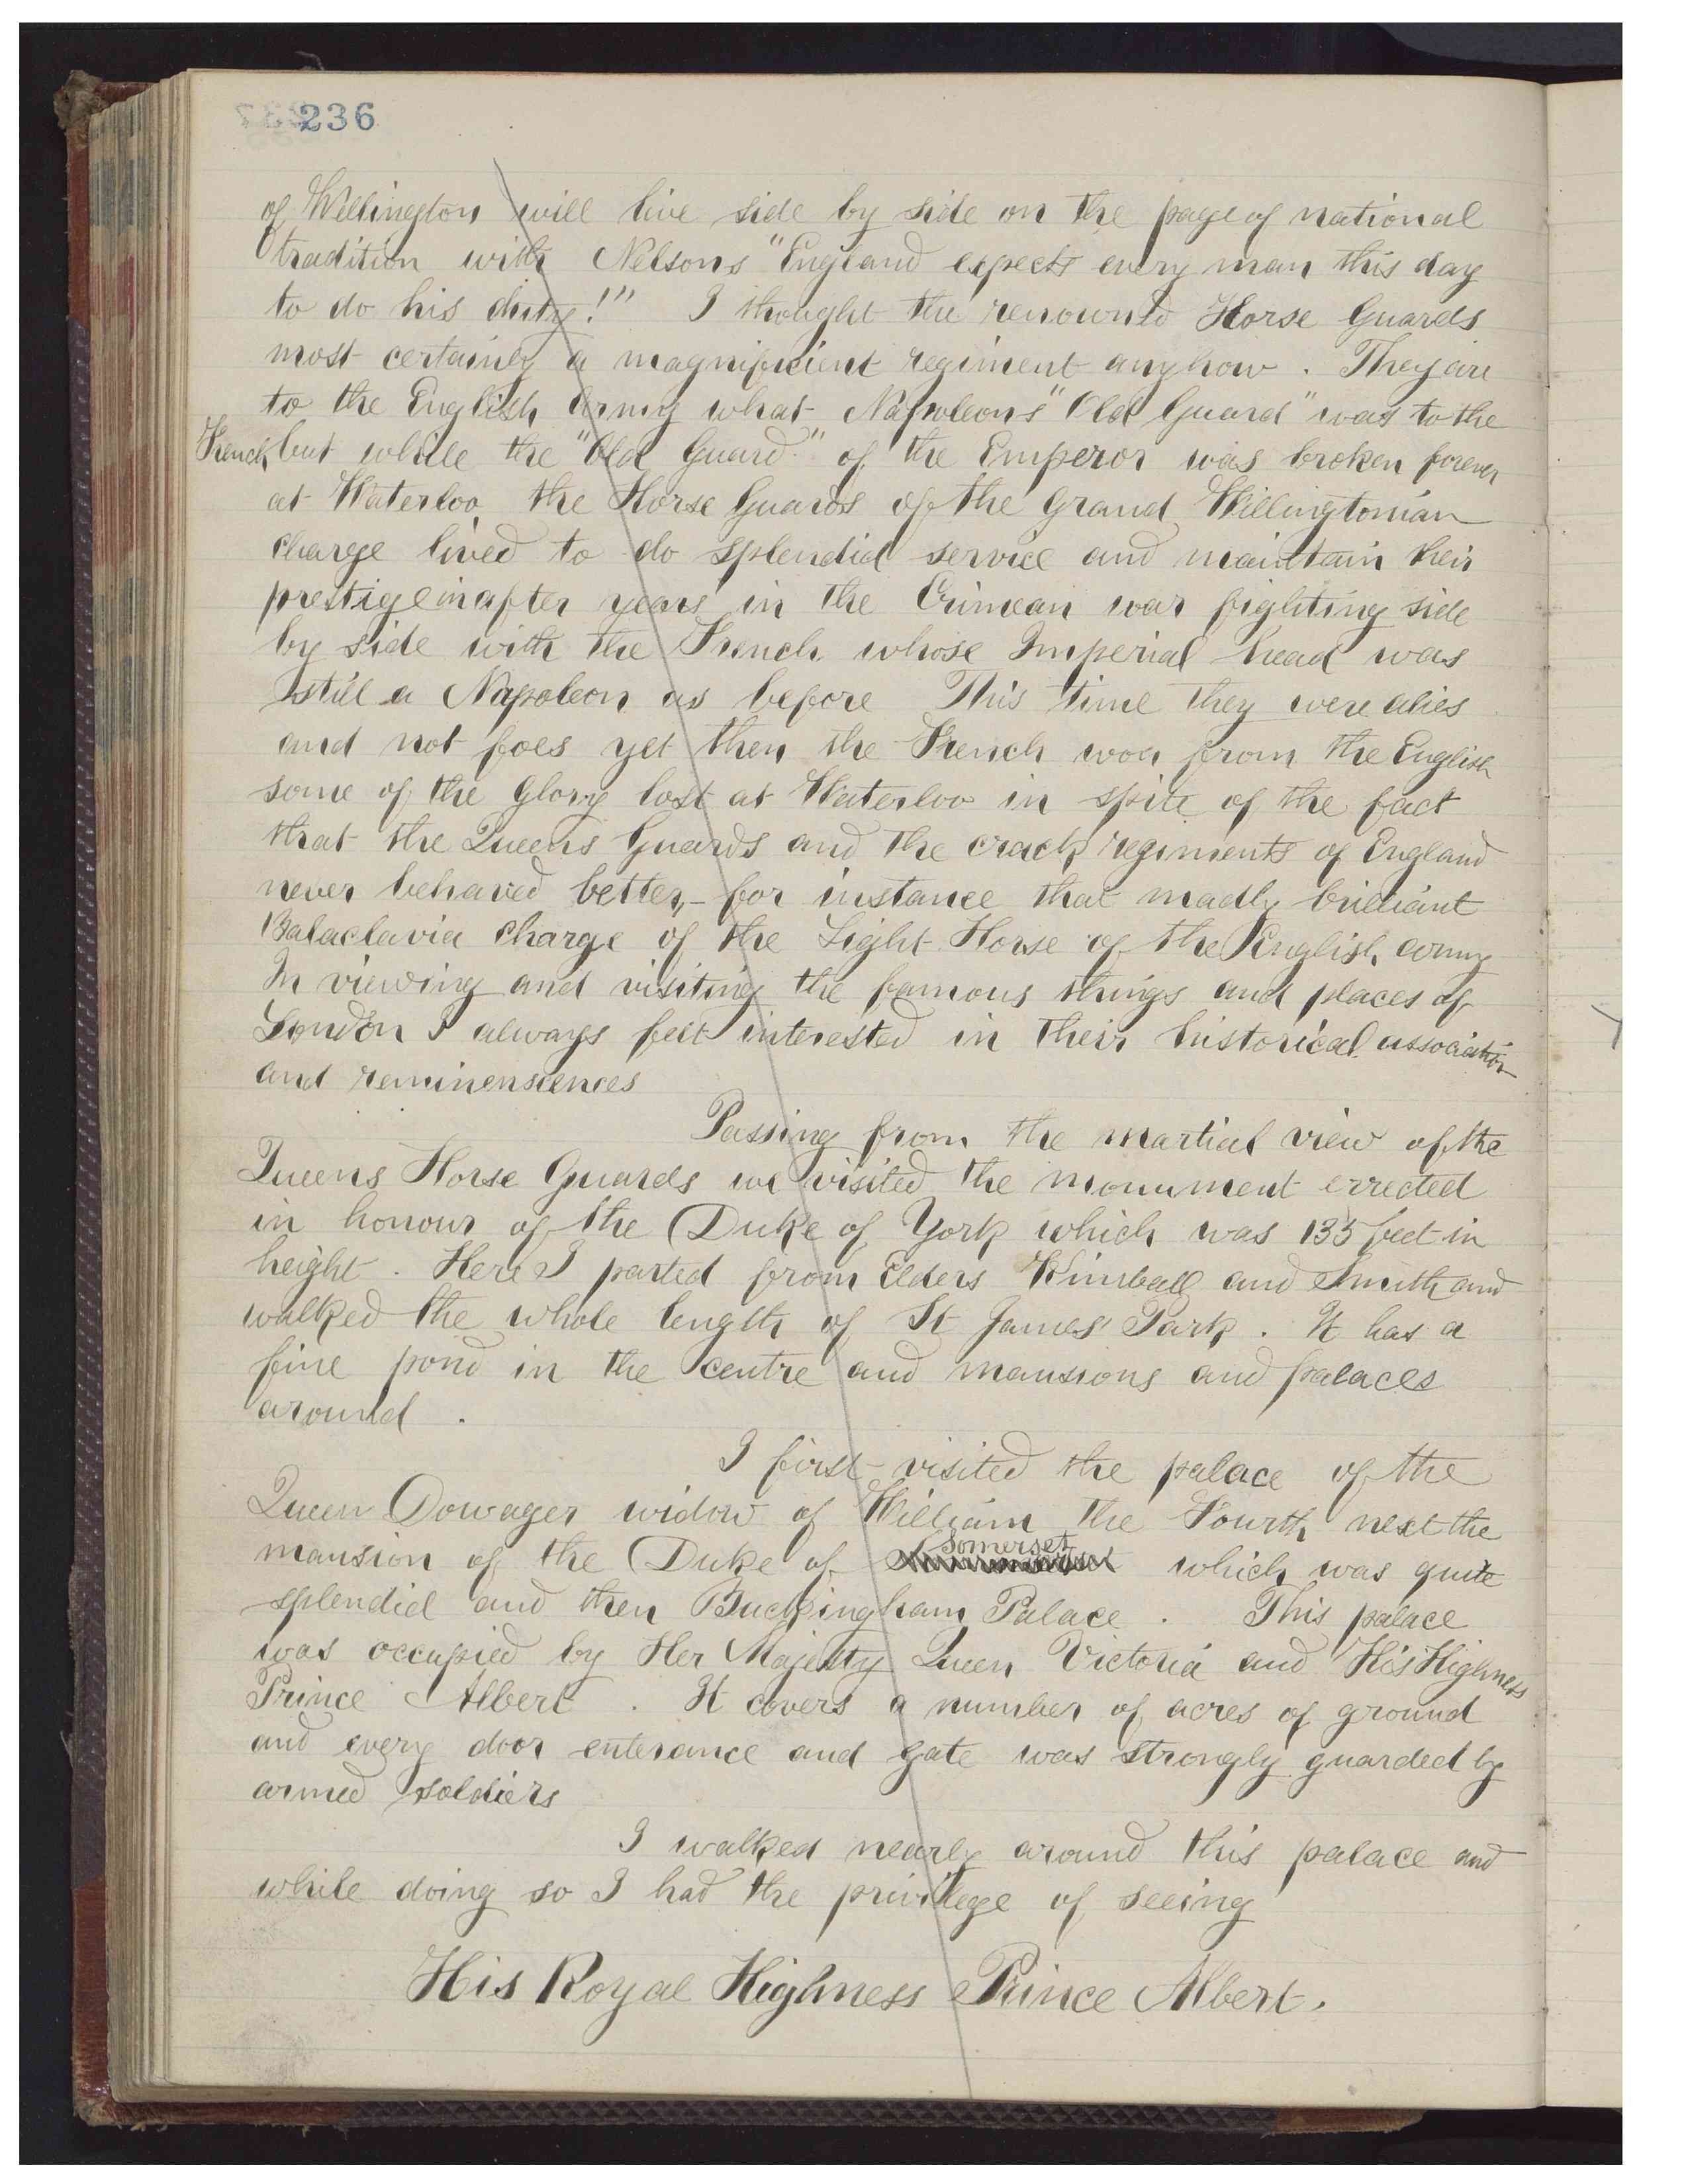 236
of Wellington will live side by side on the page of national
tradition with Nelsons "England expects every man this day
to do his duty!" I thought the renowned Horse Guards
most certainly a magnificient regiment anyhow. They are
to the English Army what Napoleons "Old Guard" was to the
French but while the "Old Guard" of the Emperor was broken forever
at Waterloo the Horse Guards of the Grand Willingtonian
charge lived to do splendid service and maintain their
prestige in after years in the Crimean war fighting side
by side with the French whose Imperial head was
still a Napoleon as before This time they were alies
and not foes yet then the French won from the English
some of the Glory lost at Waterloo in spite of the fact
that the Queens Guards and the crack regiments of England
never behaved better, - for instance that madly brilliant
Balaclavia Charge of the Light Horse of the English army
In viewing and visiting the famous things and places of
London I always felt interested in their historical association
and reminenscences
Passing from the martial view of the
Queens Horse Guards we visited the monument errected
in honour of the Duke of York which was 135 feet in
height. Here I parted from Elders Kimball and Smith and
walked the whole length of St James' Park. It has a
fine pond in the centre and mansions and palaces
around.
I first visited the palace of the
Queen Dowager widow of William the Fourth next the
mansion of the Duke of Somerset which was quite
splendid and then Buckingham Palace. This palace
was occupied by Her Majesty Queen Victoria and His Highness
Prince Albert. It covers a number of acres of ground
and every door enterance and gate was strongly guarded by
armed soldiers
I walked nearly around this palace and
while doing so I had the privilege of seeing
His Royal Highness Prince Albert.